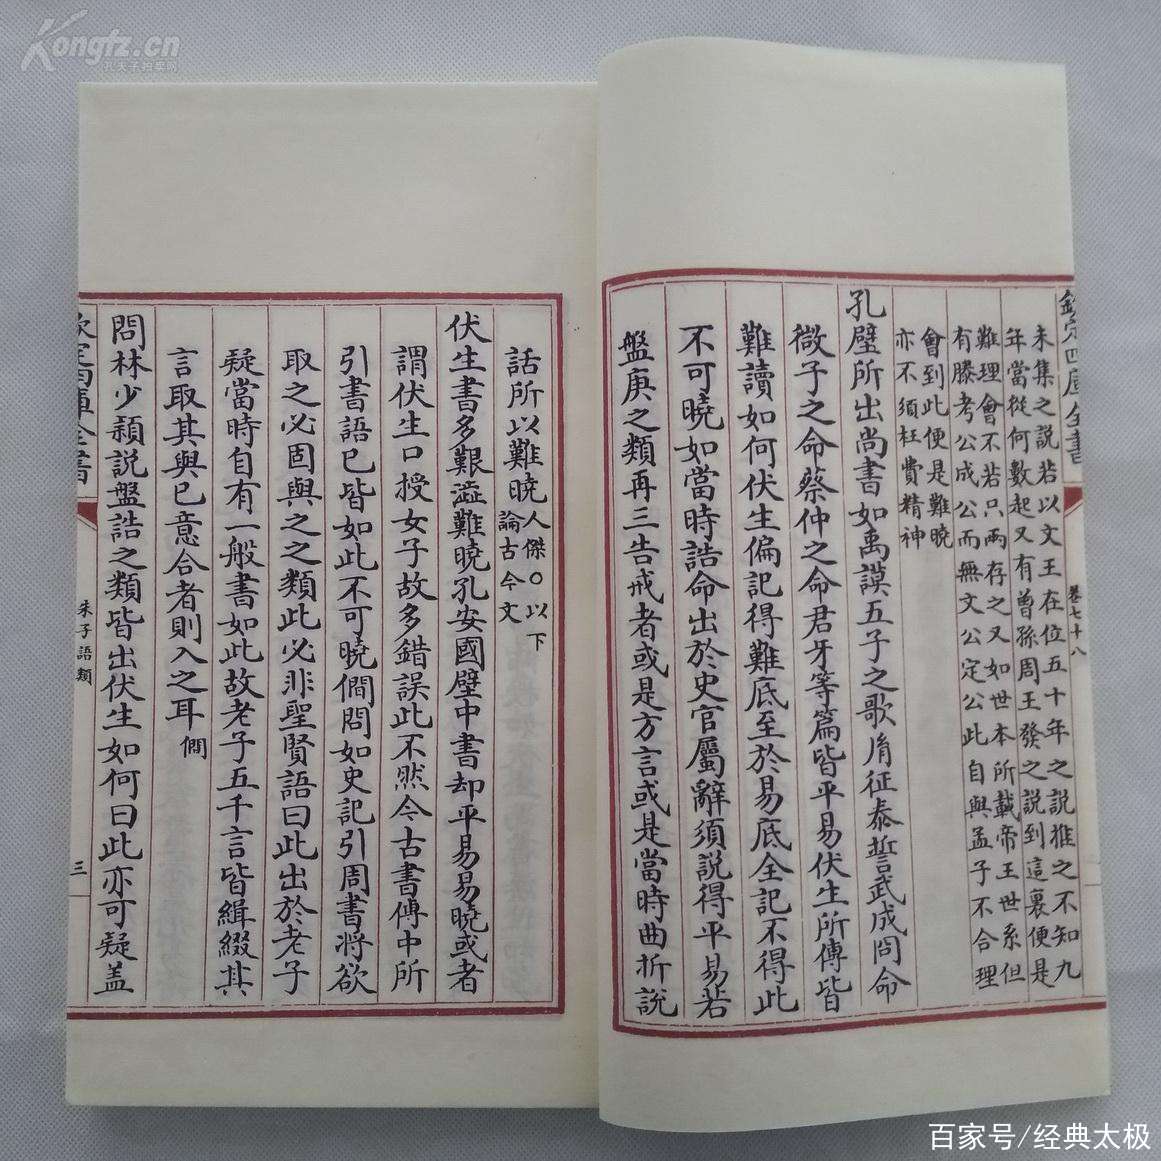 欽定四庫全書
卷七十八
未集之說若以文王在位五十年之說推之不知九
年當從何數起又有曾孫周王發之說到這裏便是
難理會不若只兩存之又如世本所載帝王世系但
有滕考公成公而無文公定公此自與孟子不合理
會到此便是難曉
亦不須枉費精神
孔壁所出尚書如禹謨五子之歌胤征泰誓武成冏命
微子之命蔡仲之命君牙等篇皆平易伏生所傳皆
難讀如何伏生偏記得難底至於易底全記不得此
不可曉如當時誥命出於史官屬辭須說得平易若
盤庚之類再三告戒者或是方言或是當時曲折說
話所以難曉
人傑○以下
論古今文
伏生書多艱澁難曉孔安國壁中書却平易易曉或者
謂伏生口授女子故多錯誤此不然今古書傳中所
引書語已皆如此不可曉僩問如史記引周書將欲
取之必固與之之類此必非聖賢語曰此出於老子
疑當時自有一般書如此故老子五千言皆緝綴其
言取其與己意合者則入之耳僩
問林少穎說盤誥之類皆出伏生如何曰此亦可疑盖
欽定四庫全書
朱子語類
三
Kongfz.cn
百家号/经典太极